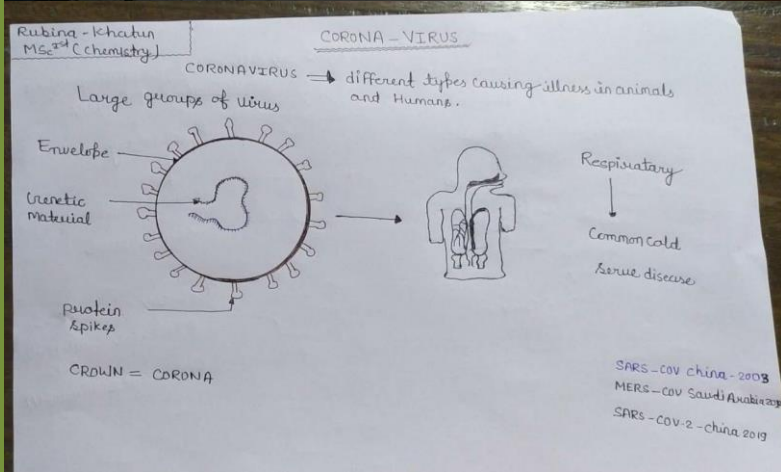 Rubina - Khatun
MSc 1st (Chemistry)
CORONA - VIRUS
CORONAVIRUS → different types causing illness in animals
and Humans.
Large groups of virus
Envelope
Genetic
Material
Protein
Spikes
CROWN = CORONA
Respiratary
Common cold
Serue disease
SARS-COV China-2003
MERS-COV Saudi Arabia
SARS-COV-2-China 2019